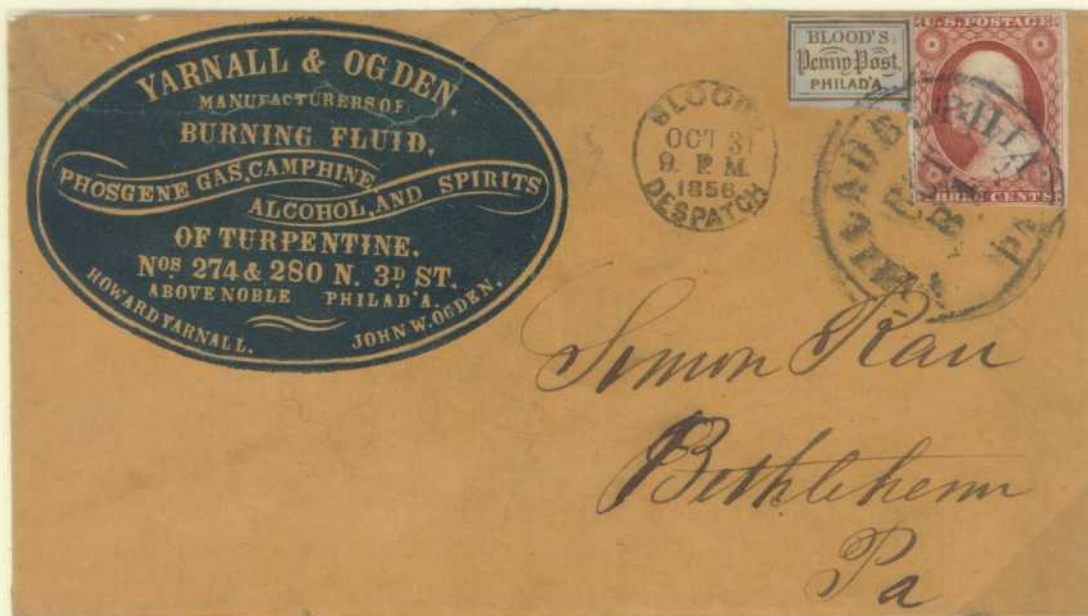 YARNALL & OGDEN,
MANUFACTURERS OF
BURNING FLUID,
PHOSGENE GAS, CAMPHINE,
ALCOHOL, AND SPIRITS
OF TURPENTINE,
Nos. 274 & 280 N. 3D ST.
ABOVE NOBLE PHILAD'A.
HOWARD YARNALL. JOHN W. OGDEN.
BLOOD'S
Penny Post.
PHILAD'A.
OCT 31
9 P. M.
1856
DESPATCH
U.S. POSTAGE
THREE CENTS
PHILADELPHIA
PA
Simon Rau
Bethlehem
Pa